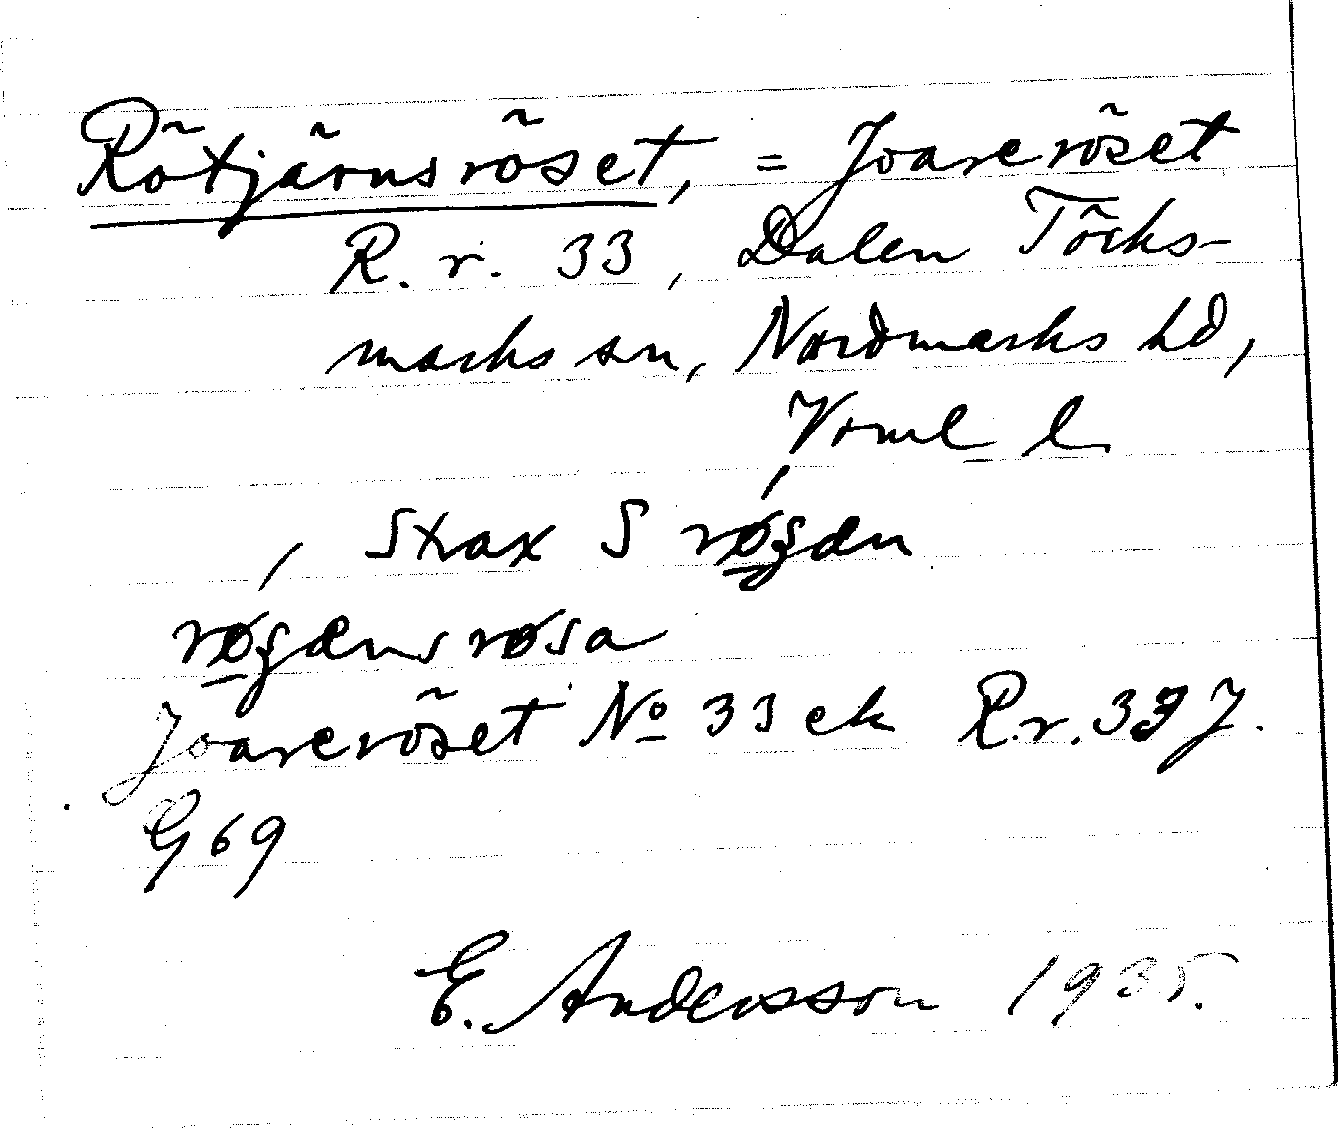 Rötjärnsröset, = Joareröset
R. r. 33, Dalen Töcks-
marks sn, Nordmarks hd,
Värml. l.
, Strax S
Joareröset No 33 ek R.r. 33 J.
G 69
E. Andersson 1935.